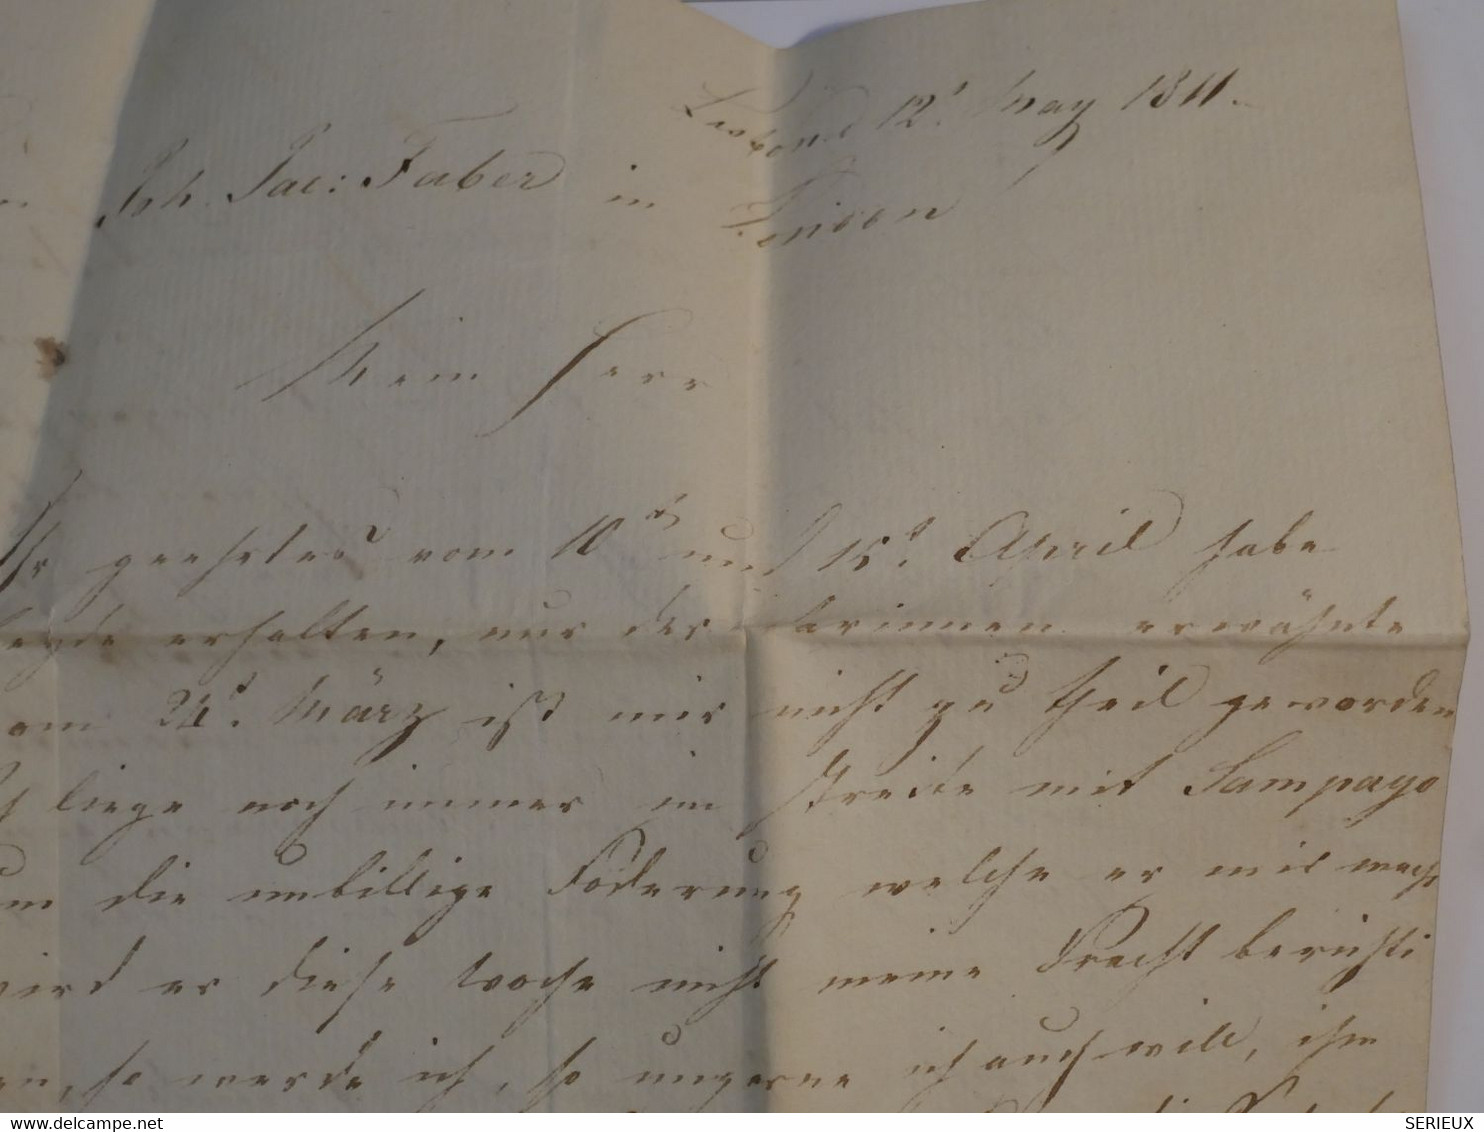 Lisbona 12t May 1811.
Joh. Jac: Faber in London
Mein Herr
Ihr geehrtes vom 10t und 15t April habe
beyde erhalten, nur der darinnen erwähnte
vom 24t März ist mir nicht zu theil geworden
Ich liege noch immer im streite mit Sampayo
um die unbillige Foderung welche er mir macht
wird er diese Woche nicht meine Fracht berichti
en, so werde ich, so ungerne ich auch will, ihm
www.delcampe.net
SERIEUX